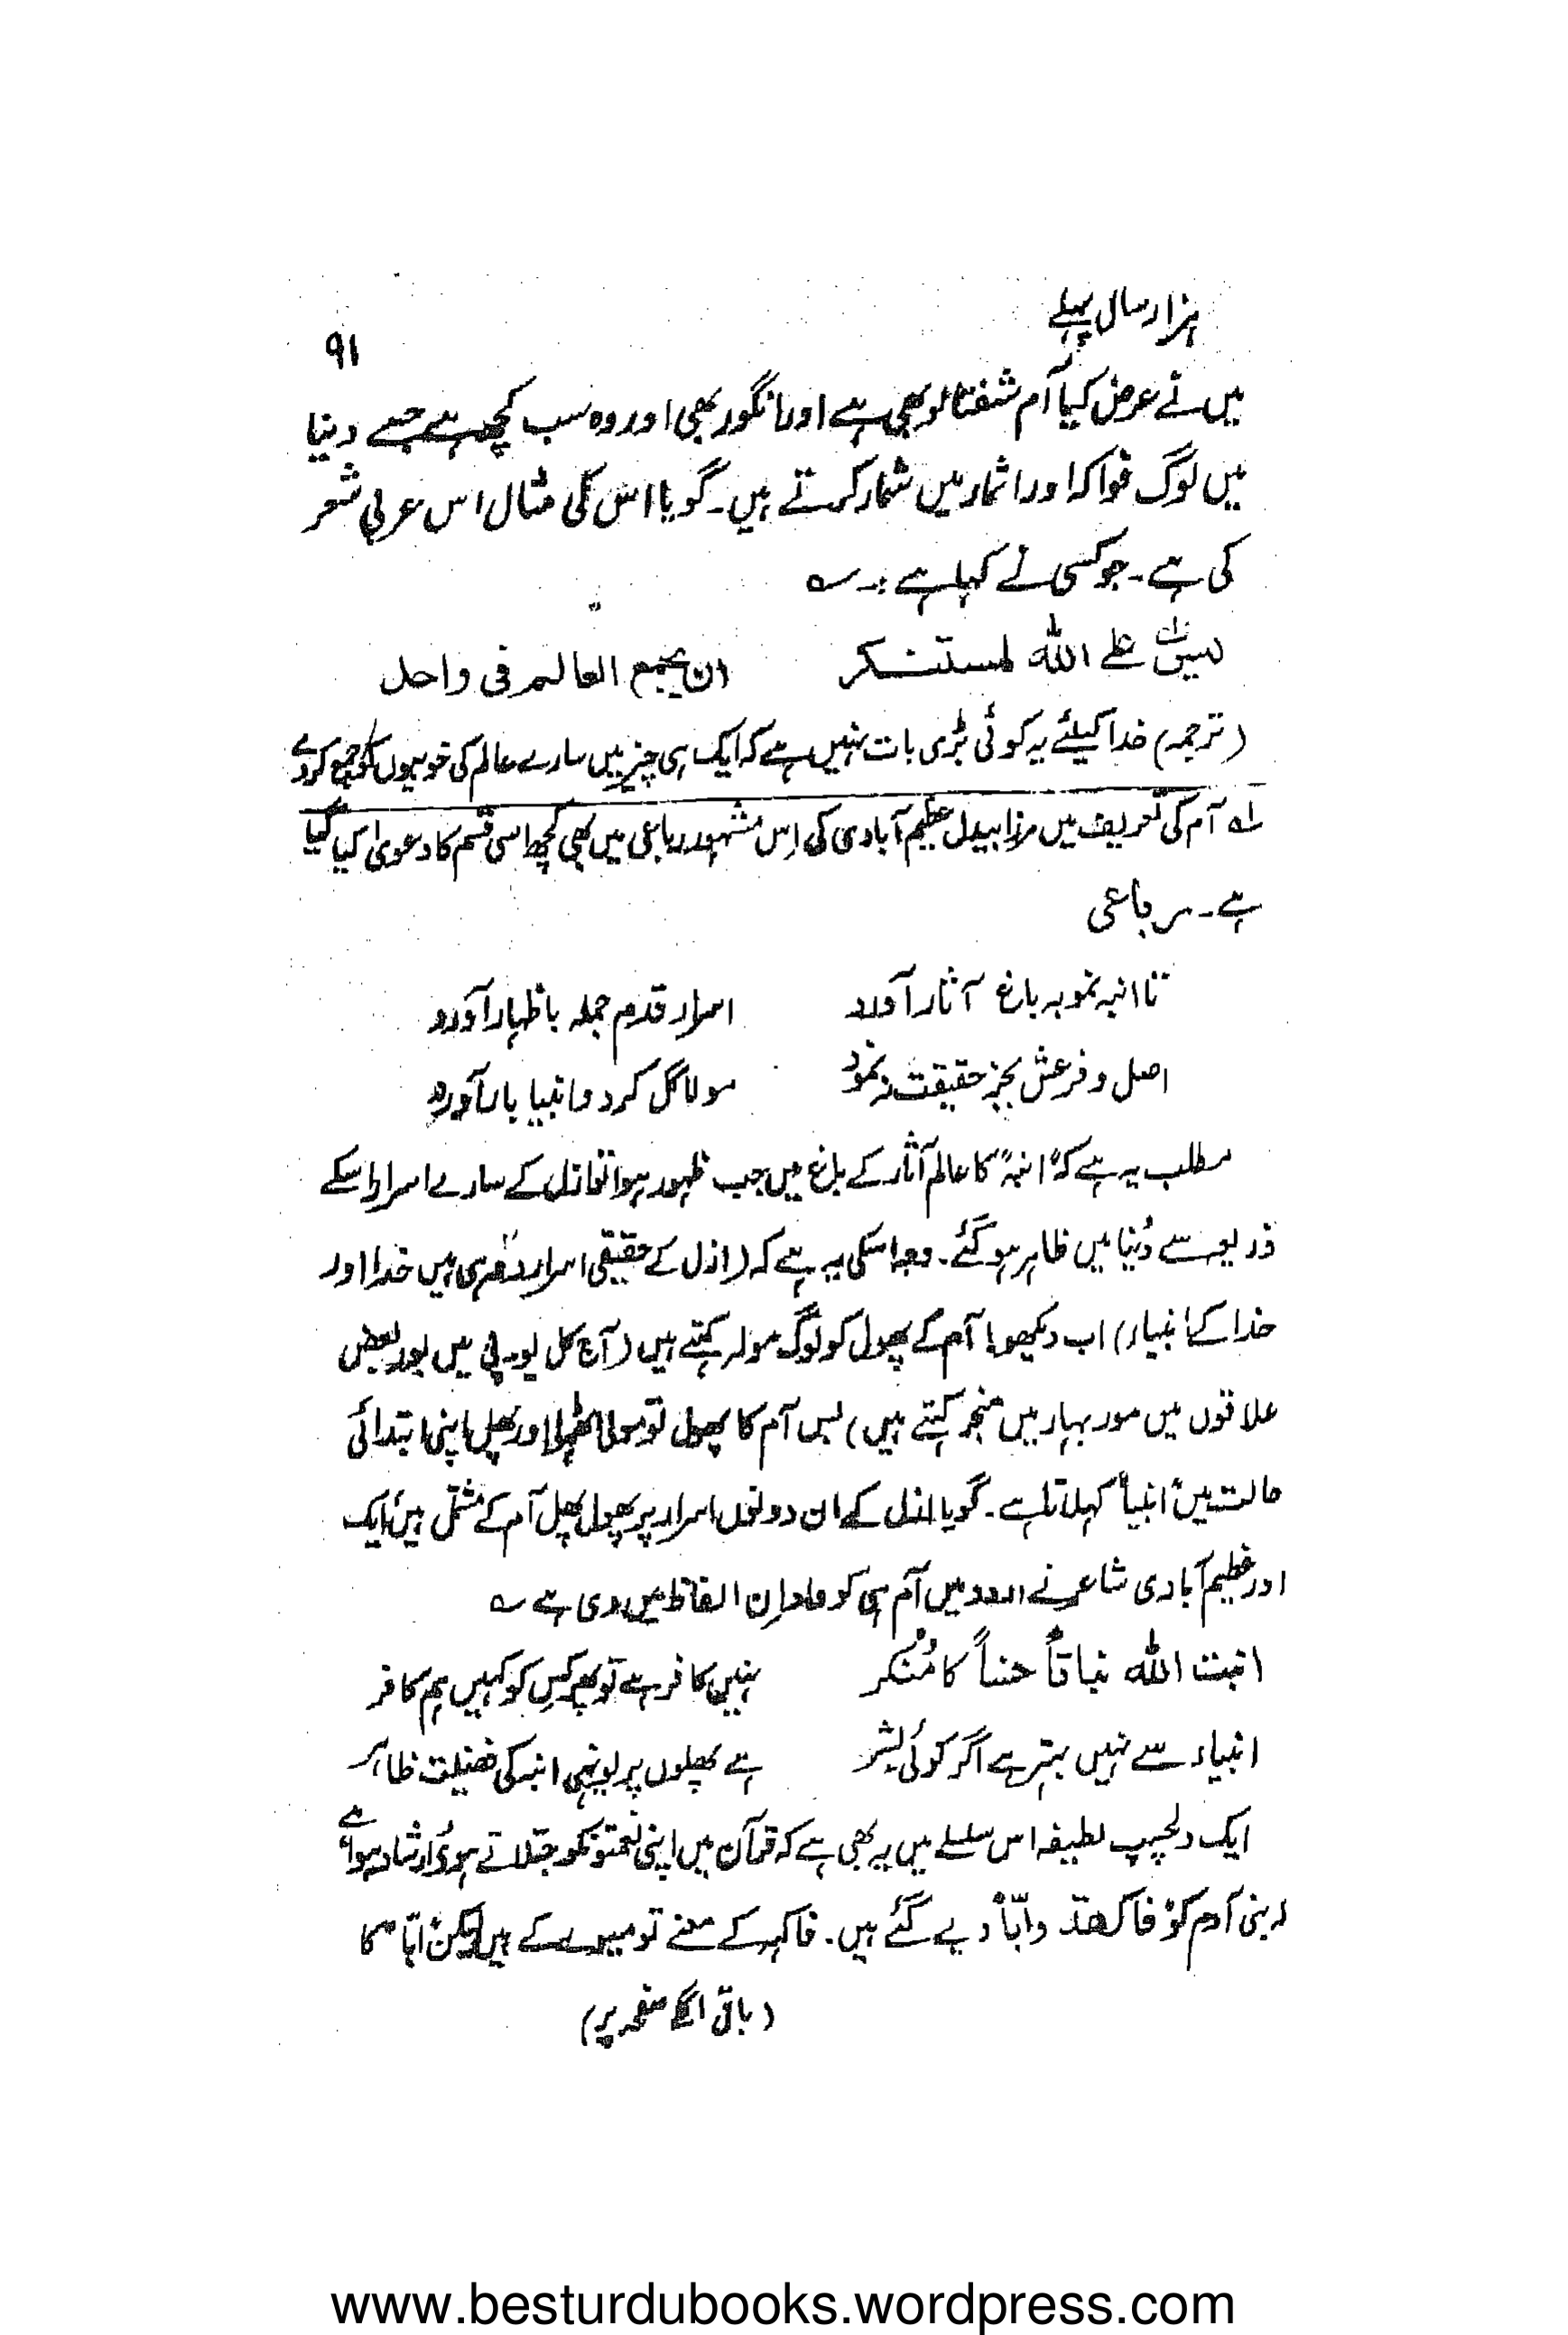 ہزار سال پہلے
۹۱
میں نے عرض کیا آم شفتالو بھی ہے اور انگور بھی اور وہ سب کچھ ہے جسے دنیا
میں لوگ فواکہ اور اثمار میں شمار کرتے ہیں۔ گویا اس کی مثال اس عربی شعر
کی ہے۔ جو کسی نے کہا ہے :۔ ؎
لیس علے اللہ لمستنکر ان یجمع العالم فی واحد
(ترجمہ) خدا کیلئے یہ کوئی بڑی بات نہیں ہے کہ ایک ہی چیز میں سارے عالم کی خوبیوں کو جمع کر دے
لہ آم کی تعریف میں مرزا بیدل عظیم آبادی کی اِس مشہور رباعی میں بھی کچھ اسی قسم کا دعویٰ کیا گیا
ہے۔ رباعی
تا انبہ نمو بہ باغ آثار آورد اسرار قدم جملہ باظہار آورد
اصل و فرعش بجز حقیقت نہ نمود مولا گل کرد و انبیا بار آورد
مطلب یہ ہے کہ "انبہ" کا عالم آثار کے باغ میں جب ظہور ہوا تو ازل کے سارے اسرار اسکے
ذریعہ سے دُنیا میں ظاہر ہو گئے۔ وجہ اسکی یہ ہے کہ (ازل کے حقیقی اسرار دو ہی ہیں خدا اور
خدا کے انبیاء) اب دیکھو! آم کے پھول کو لوگ مولہ کہتے ہیں (آج کل یو۔پی میں بور بعض
علاقوں میں مور بہار میں منجر کہتے ہیں) بس آم کا پھول تو مولیٰ ٹھہرا اور پھل اپنی ابتدائی
حالت میں "انبیا" کہلاتا ہے۔ گویا ازل کے ان دونوں اسرار پر پھول پھل آم کے مشتمل ہیں، ایک
اور عظیم آبادی شاعر نے اردو میں آم ہی کو داد اِن الفاظ میں دی ہے ؎
انبت اللہ نباتاً حسناً کا مُنکر نہیں کافر ہے تو پھر کِس کو کہیں ہم کافر
انبیاء سے نہیں بہتر ہے اگر کوئی بشر ہے پھلوں پر یونہی انبہ کی فضیلت ظاہر
ایک دلچسپ لطیفہ اس سلسلے میں یہ بھی ہے کہ قرآن میں اپنی نعمتونکو جتلاتے ہوئے ارشاد ہوا ہے
کہ بنی آدم کو "فاکھۃ وابّاً" دیے گئے ہیں۔ فاکہہ کے معنے تو میوے کے ہیں لیکن "ابّا" کا
(باقی اگلے صفحہ پر)
www.besturdubooks.wordpress.com